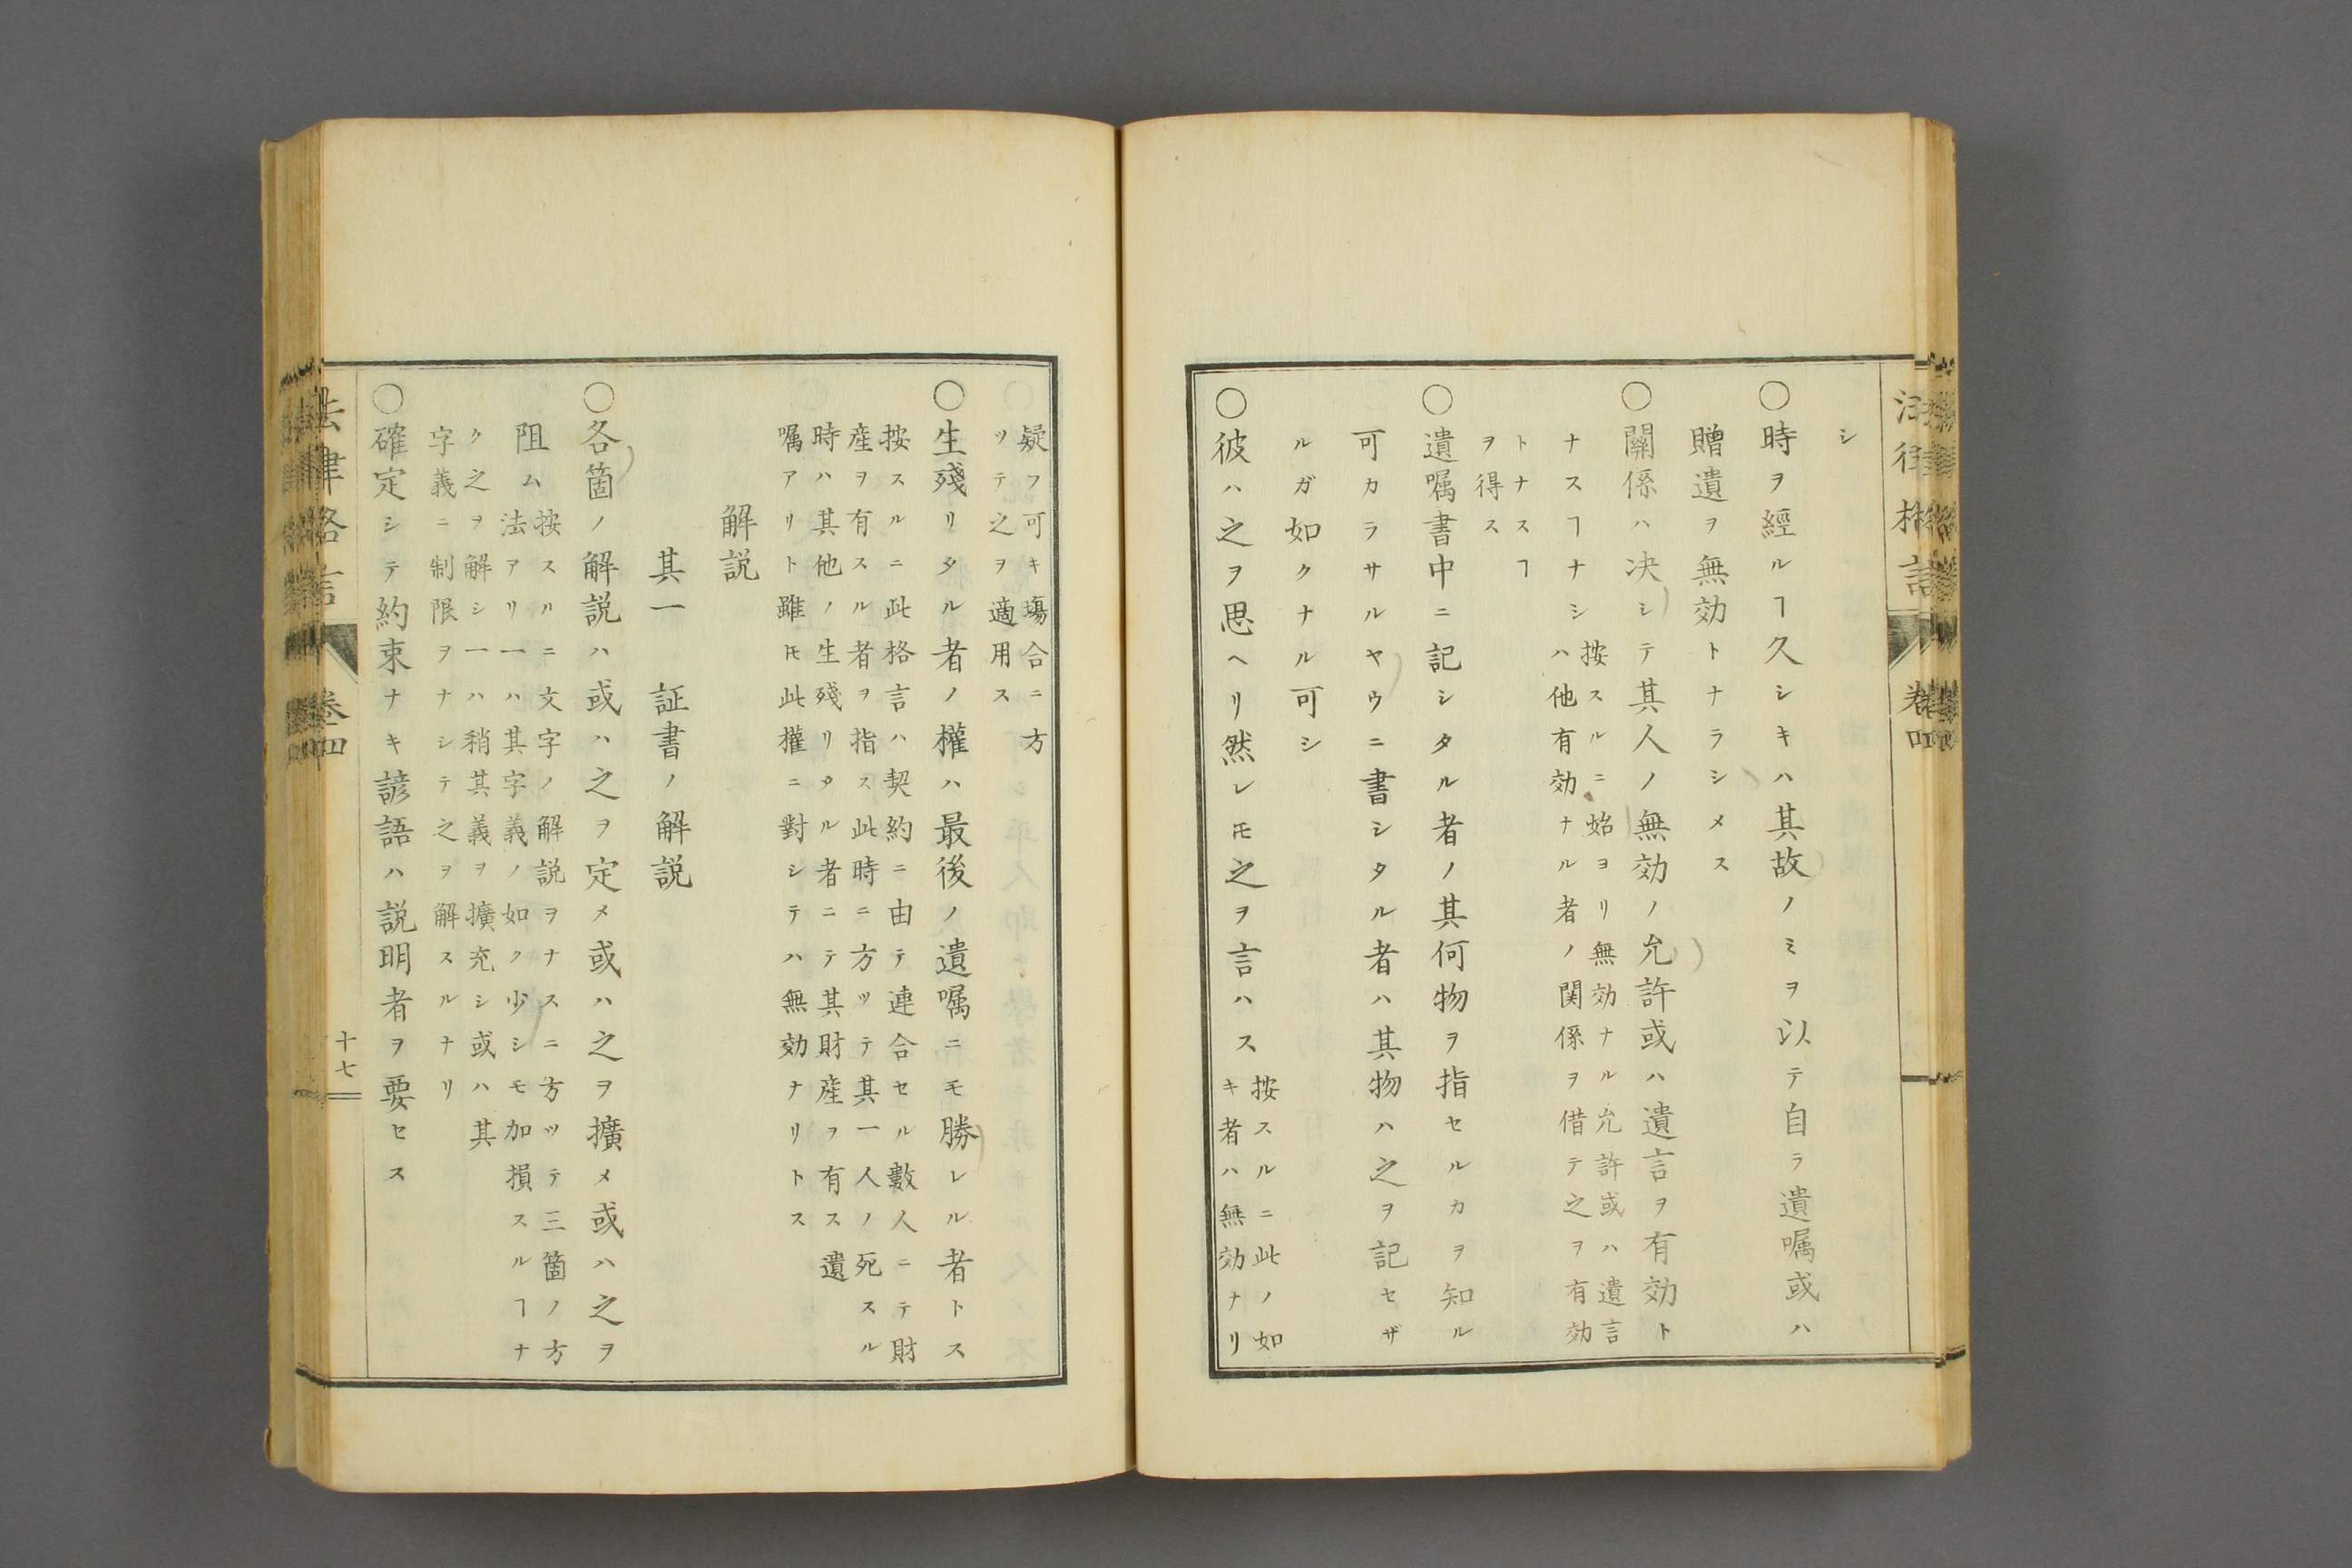 法律格言 巻四
シ
○時ヲ經ルヿ久シキハ其故ノミヲ以テ自ラ遺嘱或ハ
贈遺ヲ無効トナラシメス
○關係ハ决シテ其人ノ無効ノ允許或ハ遺言ヲ有効ト
ナスヿナシ
按スルニ始ヨリ無効ナル允許或ハ遺言
ハ他有効ナル者ノ関係ヲ借テ之ヲ有効
トナスヿ
ヲ得ス
○遺嘱書中ニ記シタル者ノ其何物ヲ指セルカヲ知ル
可カラサルヤウニ書シタル者ハ其物ハ之ヲ記セザ
ルガ如クナル可シ
○彼ハ之ヲ思ヘリ然レ𪜈之ヲ言ハス
按スルニ此ノ如
キ者ハ無効ナリ
疑フ可キ塲合ニ方
ツテ之ヲ適用ス
○生殘リタル者ノ權ハ最後ノ遺嘱ニモ勝レル者トス
按スルニ此格言ハ契約ニ由テ連合セル數人ニテ財
産ヲ有スル者ヲ指ス此時ニ方ツテ其一人ノ死スル
時ハ其他ノ生殘リタル者ニテ其財産ヲ有ス遺
嘱アリト雖𪜈此權ニ對シテハ無効ナリトス
解説
其一 証書ノ解説
○各箇ノ解説ハ或ハ之ヲ定メ或ハ之ヲ擴メ或ハ之ヲ
阻ム
按スルニ文字ノ解説ヲナスニ方ツテ三箇ノ方
法アリ一ハ其字義ノ如ク少シモ加損スルヿナ
ク之ヲ解シ一ハ稍其義ヲ擴充シ或ハ其
字義ニ制限ヲナシテ之ヲ解スルナリ
○確定シテ約束ナキ諺語ハ説明者ヲ要セス
法律格言 巻四 十七